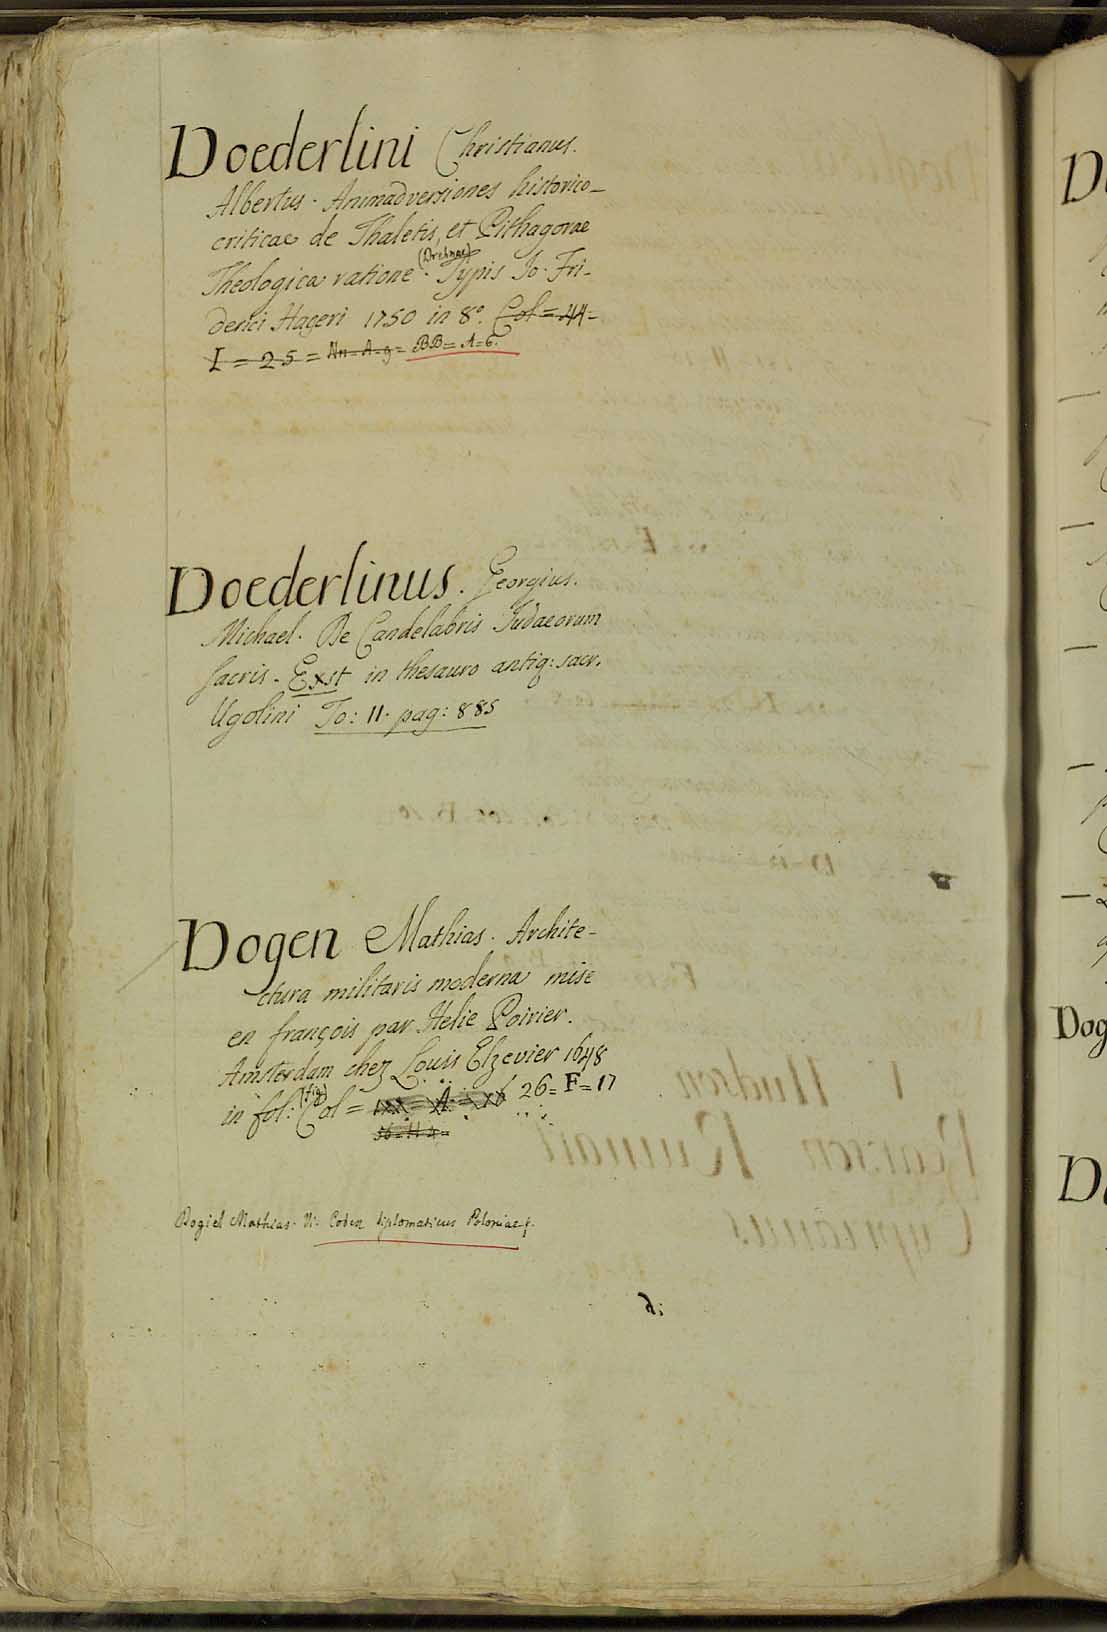 Doederlini Christianus.
Albertus. Animadversiones historico-
criticae de Thaletis, et Pithagorae
Theologica ratione. Typis Jo. Fri-
derici Hageri 1750 in 8.° Col = 44 =
I = 25 = Nn = A = 9 = BB = A = 6.
Doederlinus. Georgius.
Michael. De Candelabris Judaeorum
sacris. Exst in thesauro antiq: sacr.
Ugolini To: 11. pag: 885
Dogen Mathias. Archite-
ctura militaris moderna mise
en françois par Helie Poirier.
Amsterdam chez Louis Elzevier 1648
in fol: Col = 26 = F = 17
Dogiel Mathias. V. Codex diplomaticus Poloniae
d:
Dog